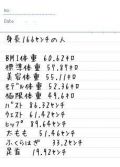 No.
Date
身長166センチの人
BMI体重 60.62キロ
標準体重 57.87キロ
美容体重 55.11キロ
モデル体重 52.36キロ
極限体重 49.6キロ
バスト 86.32センチ
ウエスト 61.42センチ
ヒップ 89.64センチ
太もも 51.46センチ
ふくらはぎ 33.2センチ
足首 19.92センチ